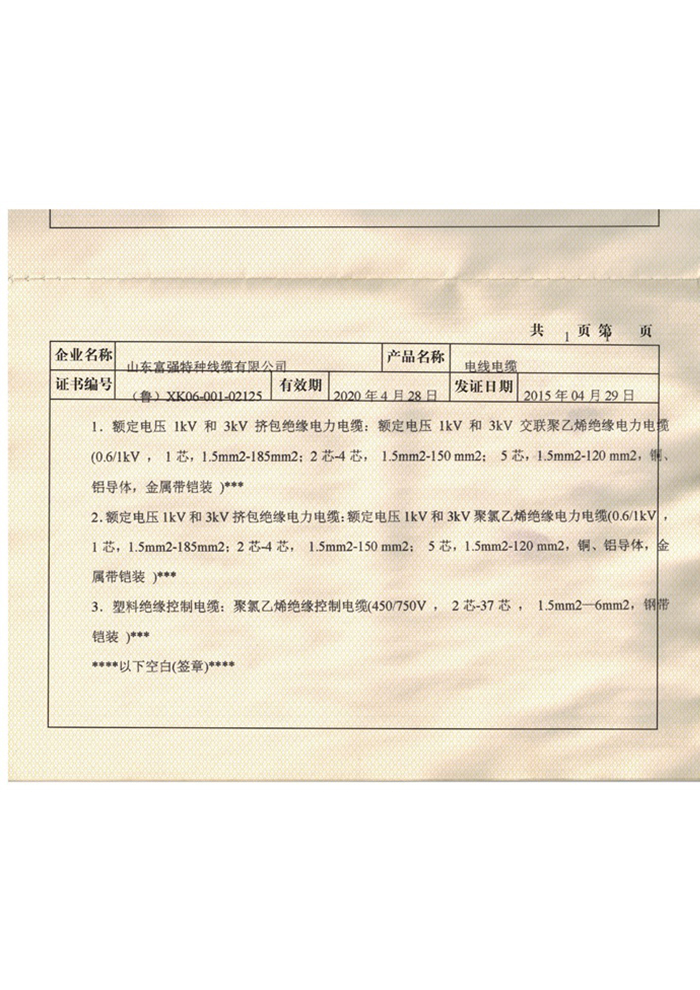 共 1 页 第 1 页
企业名称 山东富强特种线缆有限公司 产品名称 电线电缆
证书编号 （鲁）XK06-001-02125 有效期 2020 年 4 月 28 日 发证日期 2015 年 04 月 29 日
1．额定电压 1kV 和 3kV 挤包绝缘电力电缆：额定电压 1kV 和 3kV 交联聚乙烯绝缘电力电缆
(0.6/1kV ， 1 芯，1.5mm2-185mm2；2 芯-4 芯， 1.5mm2-150 mm2； 5 芯，1.5mm2-120 mm2，铜、
铝导体，金属带铠装 )***
2．额定电压 1kV 和 3kV 挤包绝缘电力电缆：额定电压 1kV 和 3kV 聚氯乙烯绝缘电力电缆(0.6/1kV ，
1 芯，1.5mm2-185mm2；2 芯-4 芯， 1.5mm2-150 mm2； 5 芯，1.5mm2-120 mm2，铜、铝导体，金
属带铠装 )***
3．塑料绝缘控制电缆：聚氯乙烯绝缘控制电缆(450/750V ， 2 芯-37 芯 ， 1.5mm2—6mm2，钢带
铠装 )***
****以下空白(签章)****